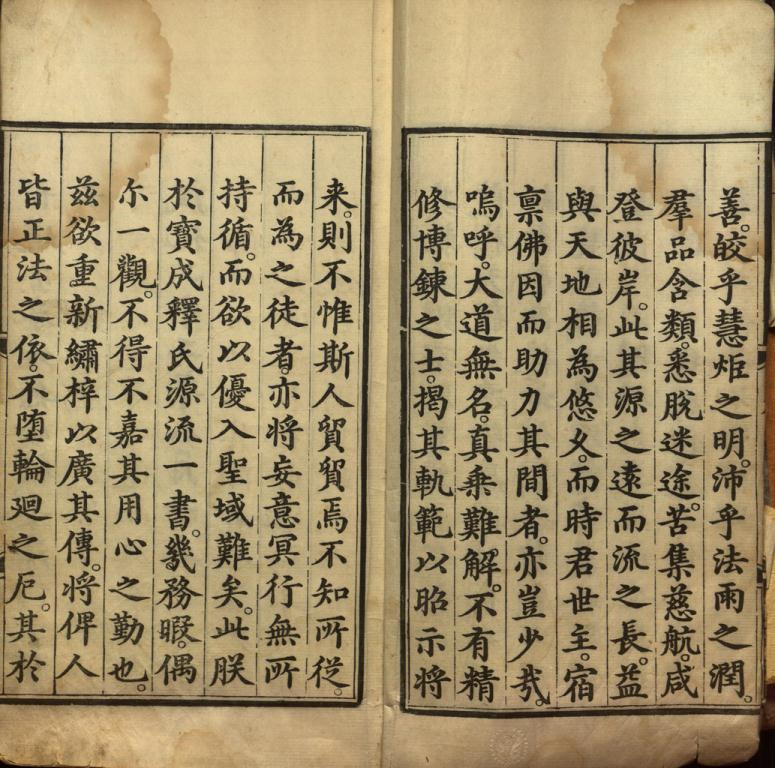 善。皎乎慧炬之明。沛乎法雨之潤。
羣品含類。悉脫迷途。苦集慈航。咸
登彼岸。此其源之遠而流之長。益
與天地相為悠久。而時君世主。宿
禀佛因而助力其間者。亦豈少哉。
嗚呼。大道無名。真乗難解。不有精
修博鍊之士。揭其軌範以昭示将
来。則不惟斯人貿貿焉不知所從。
而為之徒者。亦将妄意冥行無所
持循。而欲以優入聖域難矣。此朕
於寶成釋氏源流一書。幾務暇。偶
尔一觀。不得不嘉其用心之勤也。
兹欲重新繡梓以廣其傳。将俾人
皆正法之依。不堕輪廻之厄。其於